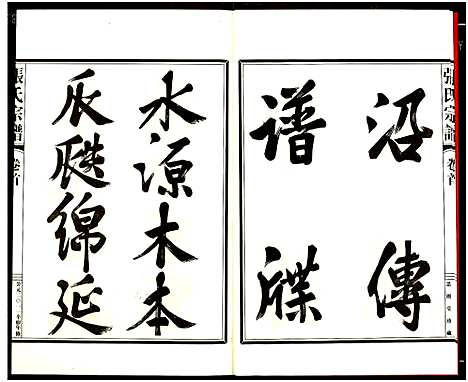 張氏宗譜
卷首
沿傳
譜牒
水源木本
瓜瓞綿延
張氏宗譜
卷首